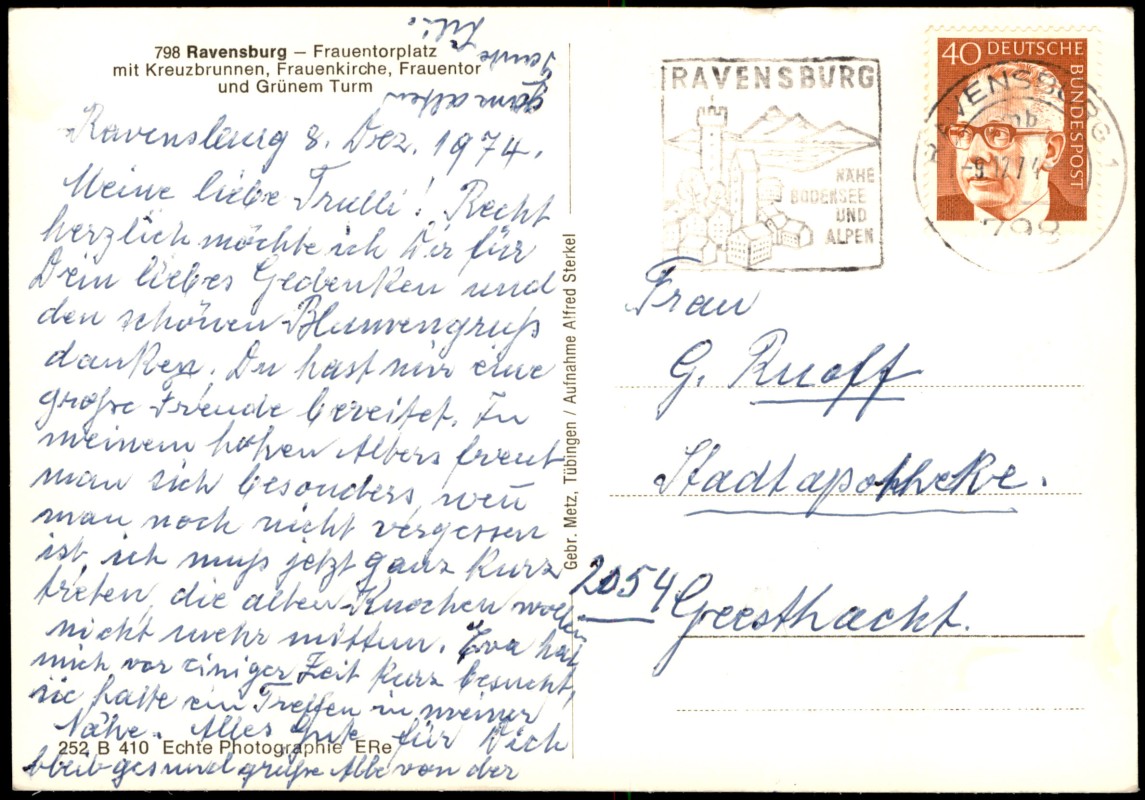 798 Ravensburg – Frauentorplatz
mit Kreuzbrunnen, Frauenkirche, Frauentor
und Grünem Turm
Ravensburg 8. Dez. 1974.
Meine liebe Trulli! Recht
herzlich möchte ich Dir für
Dein liebes Gedenken und
den schönen Blumengruß
danken. Du hast mir eine
große Freude bereitet. In
meinem hohen Alters freut
man sich besonders, weñ
man noch nicht vergessen
ist. ich muß jetzt ganz kurz
treten, die alten Knochen wollen
nicht mehr mittun. Eva hat
mich vor einiger Zeit kurz besucht,
sie hatte ein Treffen in meiner
Nähe. Alles Gute für Dich
bleib gesund grüße Alle von der
ganz alten
Tante
252 B 410 Echte Photographie ERe
Gebr. Metz, Tübingen / Aufnahme Alfred Sterkel
RAVENSBURG
NAHE
BODENSEE
UND
ALPEN
40 DEUTSCHE
BUNDESPOST
RAVENSBURG 1
-9.12.74
798
Frau
G. Ruoff
Stadtapotheke.
2054 Geesthacht.